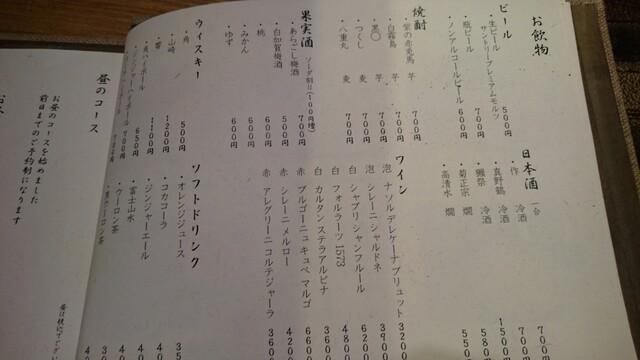 お飲物
ビール
・生ビール 500円
サントリープレミアムモルツ
・瓶ビール 700円
・ノンアルコールビール 600円
焼酎
・紫の赤兎馬 芋 700円
・白霧島 芋 700円
・黒〇 芋 700円
・つくし 麦 700円
・八重丸 麦 700円
果実酒 ソーダ割り(100円増)
・あらごし梅酒 700円
・白加賀梅酒 500円
・桃 600円
・みかん 600円
・ゆず 600円
ウィスキー
・角 500円
・山崎 1200円
・響 1100円
・角ハイボール 650円
・ジンジャーハイボール 700円
日本酒 一合
・作 冷酒
・真野鶴 冷酒
・鷹祭 冷酒
・菊正宗 燗
・高清水 燗
ワイン
泡 ナソルデレケーナブリュット 3200
泡 シレーニ シャルドネ 3900
白 シャブリ シャンフルール 6200
白 フォルラーツ 1573 4800
白 カルタン ステラアルピナ 3600
赤 ブルゴーニュ キュベ マルゴ 6600
赤 シレーニ メルロー 4200
赤 アレグリーニ コルテジャーラ 3600
ソフトドリンク
・オレンジジュース
・コカコーラ
・ジンジャーエール
・富士山水
・ウーロン茶
・黒ウーロン茶
昼のコース
お昼のコースを始めました
前日までのご予約制になります